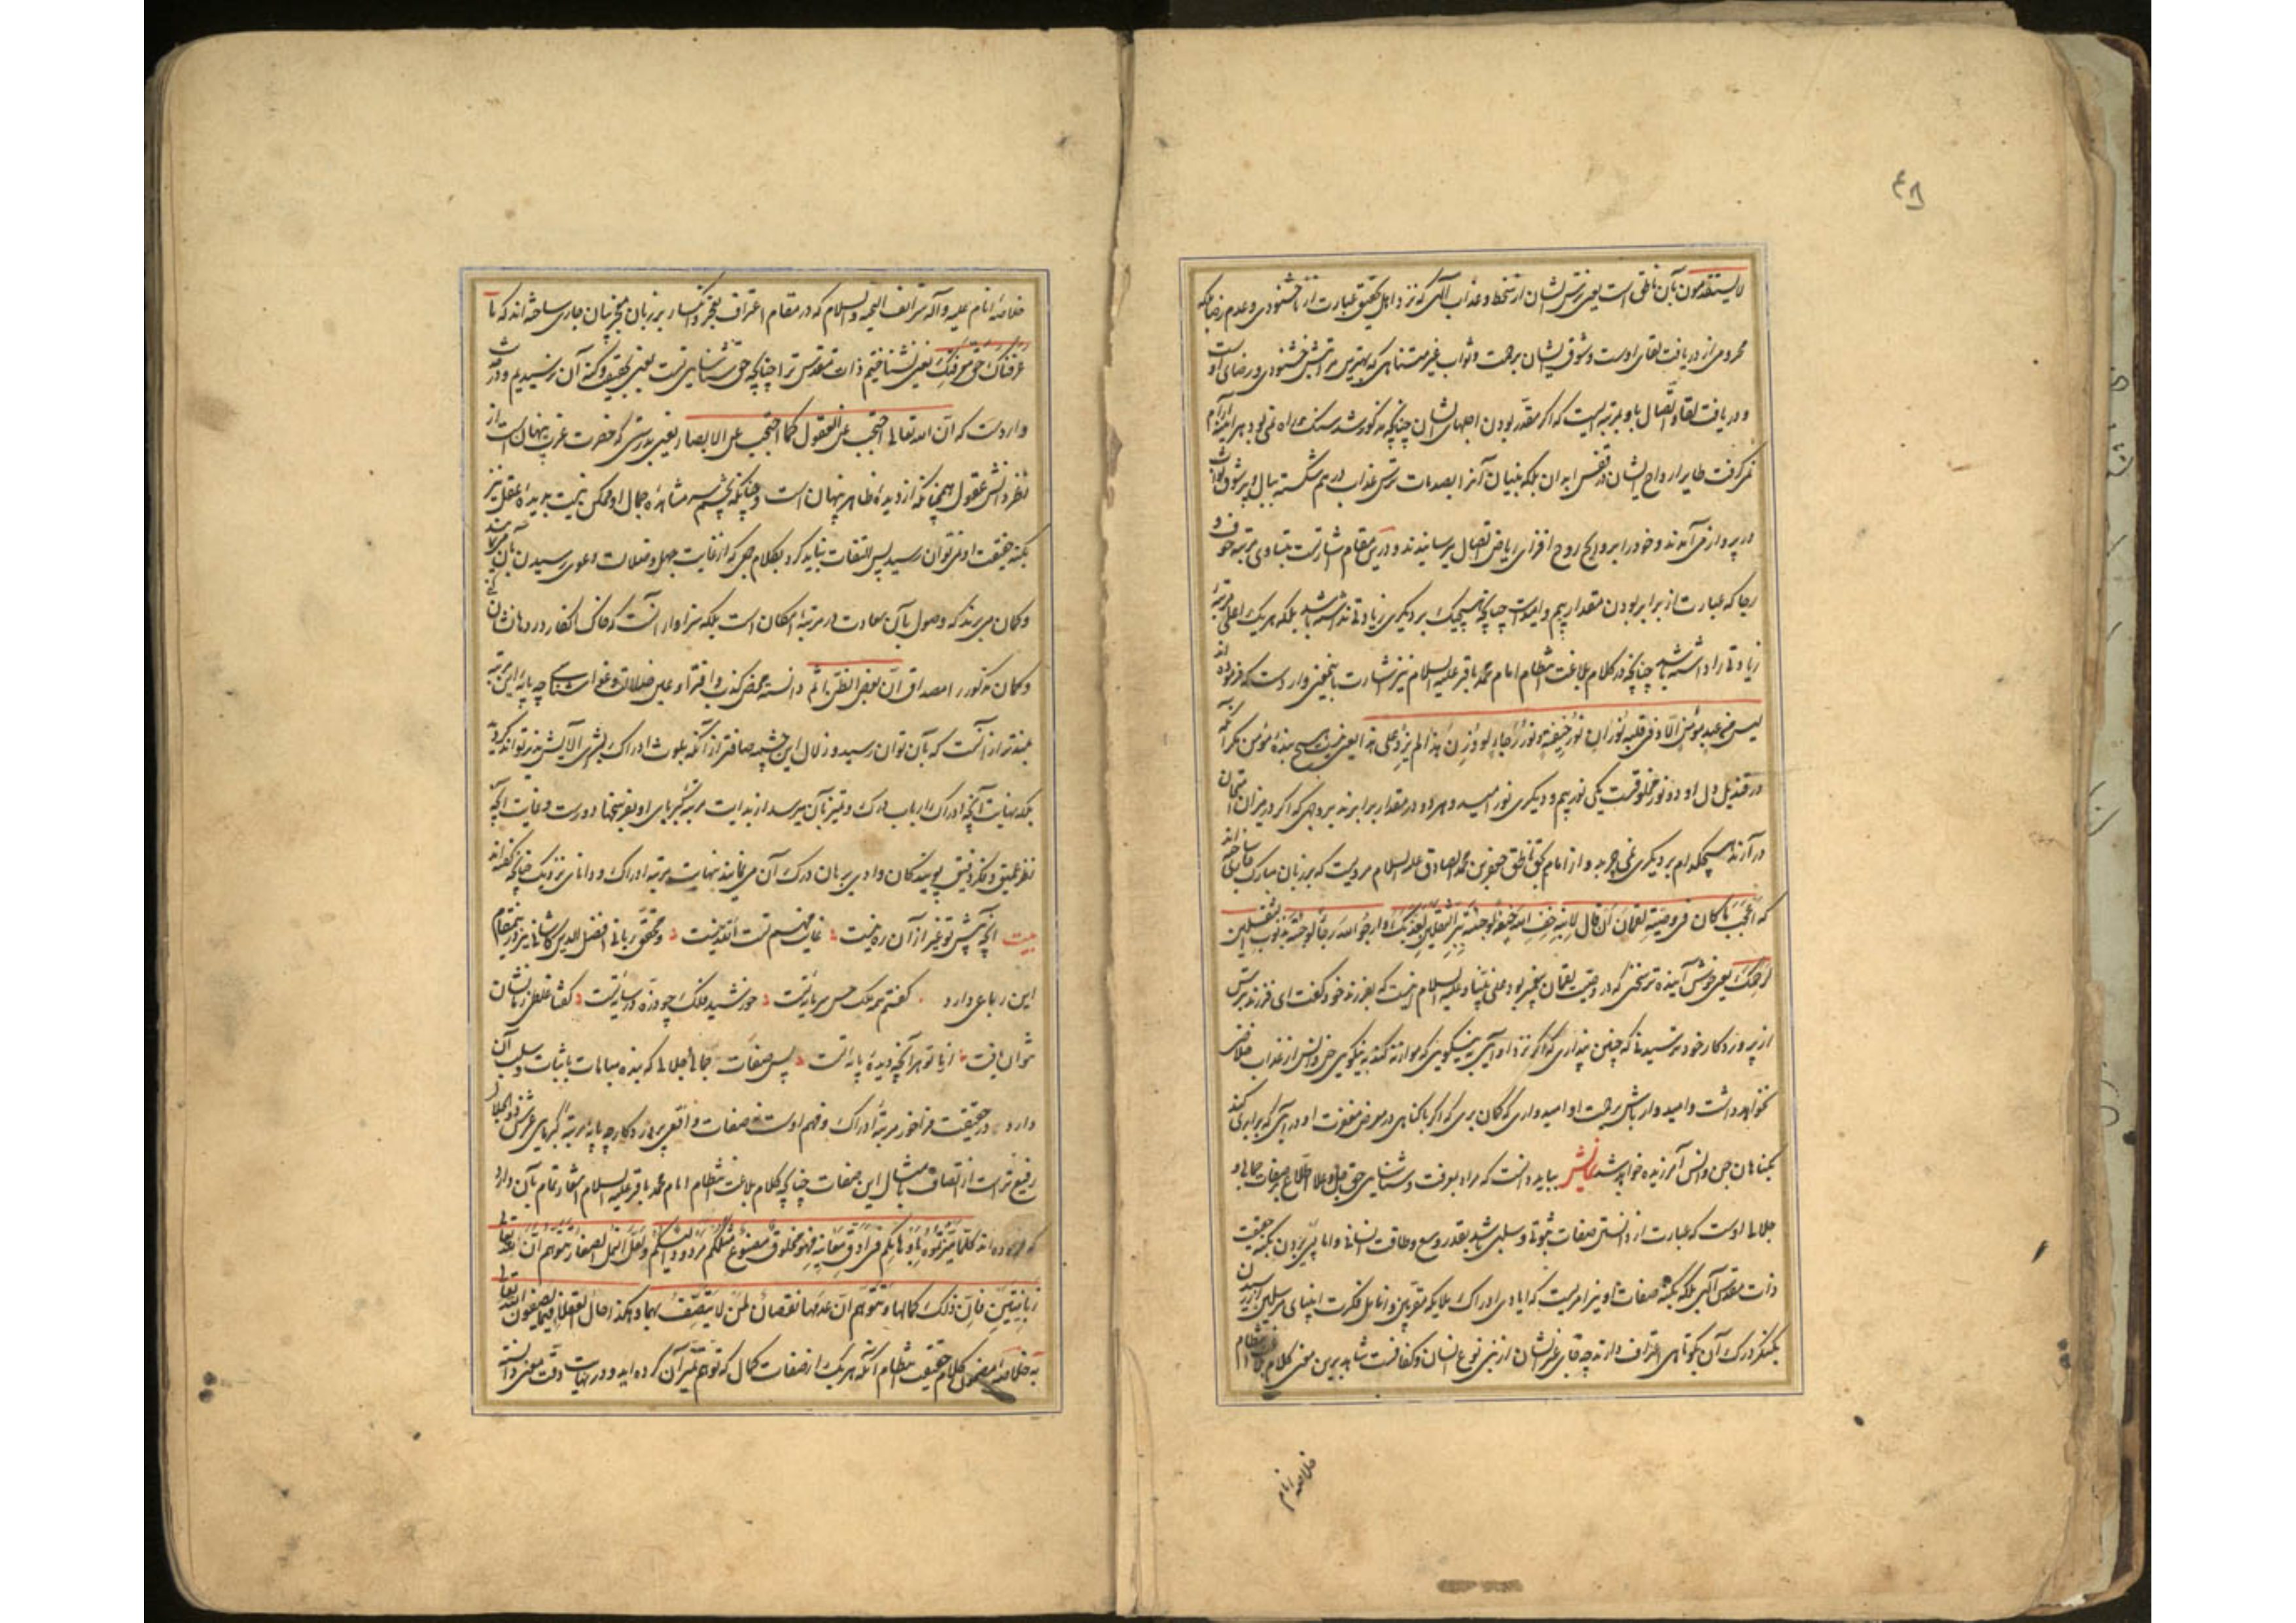 ۴۸
لا یستقدمون بآن ناطق است یعنی ترس ایشان از سخط و عذاب الهی که نزد اهل تحقیق عبارت از ناخشنودی و عدم رضا بلکه
محرومی از دریافت لقای اوست و شوق ایشان برحمت و ثواب غیر متناهی که بهترین مراتبش خشنودی و رضای او است
و دریافت لقا و اتصال باو بمرتبه ایست که اگر مقدر بودن اجلهای ایشان چنانچه مذکور شد سنگ راه نمی بود هر آینه آرام
نمی گرفت طایر ارواح ایشان در قفس ابدان بلکه بنیان آنرا بصدمات ترس عذاب درهم شکسته ببال و پر شوق ثواب
در پرواز می آمدند و خود را بروایح روح افزای ریاض اتصال میرسانیدند و درین مقام اشارتست بتساوی مرتبه خوف و
رجا که عبارت از برابر بودن مقدار بیم و امید است چنانچه هیچیک بر دیگری زیادتی نداشته باشد بلکه هر یک اعلی مرتبه
زیادتی را داشته باشد چنانچه در کلام بلاغت انتظام امام محمد باقر علیه السلام نیز اشارت باینمعنی وارد است که فرموده اند
لیس من عبد مؤمن الا و فی قلبه نوران نور خیفة و نور رجاء لو وزن هذا لم یزد علی هذا یعنی نیست هیچ بنده مؤمن مگر آنکه
در قندیل دل او دو نور مخلوقست یکی نور بیم و دیگری نور امید و هر دو در مقدار برابرند بروجهی که اگر در میزان امتحان
در آرند هیچکدام بر دیگری نمی چربد و از امام بحق ناطق جعفر بن محمد الصادق علیه السلام مرویست که بر زبان مبارک جاری ساخته اند
که اعجب ما کان فی وصیة لقمان ان قال لابنه خف الله خیفة لو جئته ببر الثقلین لعذبک و ارج الله رجاء لو جئته بذنوب الثقلین
لرحمک یعنی خوش آینده تر سخنی که در وصیت لقمان پیغمبر بود علی نبینا و علیه السلام اینست که بفرزند خود گفت ای فرزند بترس
از پروردگار خود ترسیدنی که چنین پنداری که اگر نزد او آیی به نیکویی که موازنه کند به نیکویی جن و انس از عذاب خلاصی
نخواهد داشت و امیدوار باش برحمت او امیدواری که گمان بری که اگر با گناهی در معرض مغفرت او در آیی که برابری کند
بگناهان جن و انس آمرزیده خواهی شد نمایش بباید دانست که مراد بمعرفت و شناسایی حق جل و علا اطلاع بر صفات جمالی و
جلالی اوست که عبارت از دانستن صفات ثبوتی و سلبی باشد بقدر وسع و طاقت انسانی و اما پی بردن بکنه حقیقت
ذات مقدس الهی بلکه بکنه صفات او نیز امریست که ایادی ادراک ملایکه مقربین و انامل فکرت انبیای مرسلین از رسیدن
بکنگره درک آن بکوتاهی اعتراف دارند چه جای غیر ایشان از بنی نوع انسان و کفافست شاهد برین معنی کلام اعجاز انتظام
خلاصه انام
خلاصه انام علیه و آله شرائف التحیه و السلام که در مقام اعتراف بعجز و انکسار بر زبان معجز بیان جاری ساخته اند که ما
عرفناک حق معرفتک یعنی نشناختیم ذات مقدس ترا چنانچه حق شناسایی تست یعنی بحقیقت و کنه آن نرسیدیم و در حدیث
واردست که ان الله تعالی احتجب عن العقول کما احتجب عن الابصار یعنی بدرستی که حضرت عزت پنهان است از
نظر دانش عقول همچنانکه از دیده ظاهر پنهان است و چنانکه بچشم سر مشاهده جمال او ممکن نیست بدیده عقل نیز
بکنه حقیقت او نمی توان رسید پس التفات نباید کرد بکلام جمعی که از غایت جهل و ضلالت دعوی رسیدن بآن مرتبه نمایند
و گمان می برند که وصول بآن سعادت در مرتبه امکان است بلکه سزاوار آنست که خاک انکار در دهانشان کنی
و گمان مذکور را مصداق ان بعض الظن اثم دانسته محض کذب و افترا و عین ضلالت و غوا شناسی چه پایه این مرتبه
بلندتر از آنست که بآن توان رسید و زلال این چشمه صافتر از آنکه بلوث ادراک بشری آلایش پذیر تواند گردید
بلکه نهایت آنچه ادراک ارباب درک و تمیز بآن میرسد از بدایت مرتبه کبریای او بفرسخها دورست و غایت آنچه
نظر عمیق و فکر دقیق پویندگان وادی برهان درک آن می نمایند بنهایت مرتبه ادراک و دانای نزدیک چنانچه گفته اند
بیت آنچه پیش تو غیر از آن ره نیست غایت فهم تست الله نیست و محقق ربانی افضل الدین کاشانی نیز درینمقام
این رباعی دارد گفتم همه ملک حسن سرمایه تست خورشید فلک چو ذره در سایه تست گفتا غلطی ز ما نشان
نتوان یافت از ما تو هر آنچه دیده پایه تست پس صفات جمالی جلالی که بنده مباهات باثبات و سلب آن
دارد در حقیقت فراخور مرتبه ادراک و فهم اوست نه صفات واقعی پروردگار چه پایه مرتبه کبریای عرش ذوالجلال
رفیع تر است از اتصاف بامثال این صفات چنانچه کلام بلاغت انتظام امام محمد باقر علیه السلام اشعار تمام بآن دارد
که فرموده اند کلما میزتموه باوهامکم فی ادق معانیه فهو مخلوق مصنوع مثلکم مردود الیکم و لعل النمل الصغار تتوهم ان لله تعالی
زبانیتین فان ذلک کمالها و تتوهم ان عدمها نقصان لمن لا یتصف بهما و هکذا حال العقلاء فیما یصفون الله تعالی
به خلاصه مضمون کلام حقیقت انتظام آنکه هر یک از صفات کمال که توهم تمیز آن کرده اید و در نهایت دقت معنی دانسته